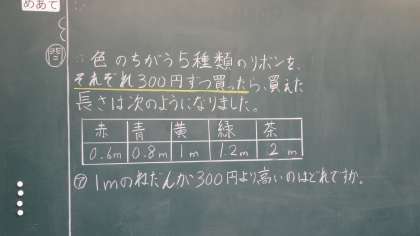 めあて
問
色のちがう5種類のリボンを、
それぞれ300円ずつ買ったら、買えた
長さは次のようになりました。
赤 青 黄 緑 茶
0.6m 0.8m 1m 1.2m 2m
㋐ 1mのねだんが300円より高いのはどれですか。